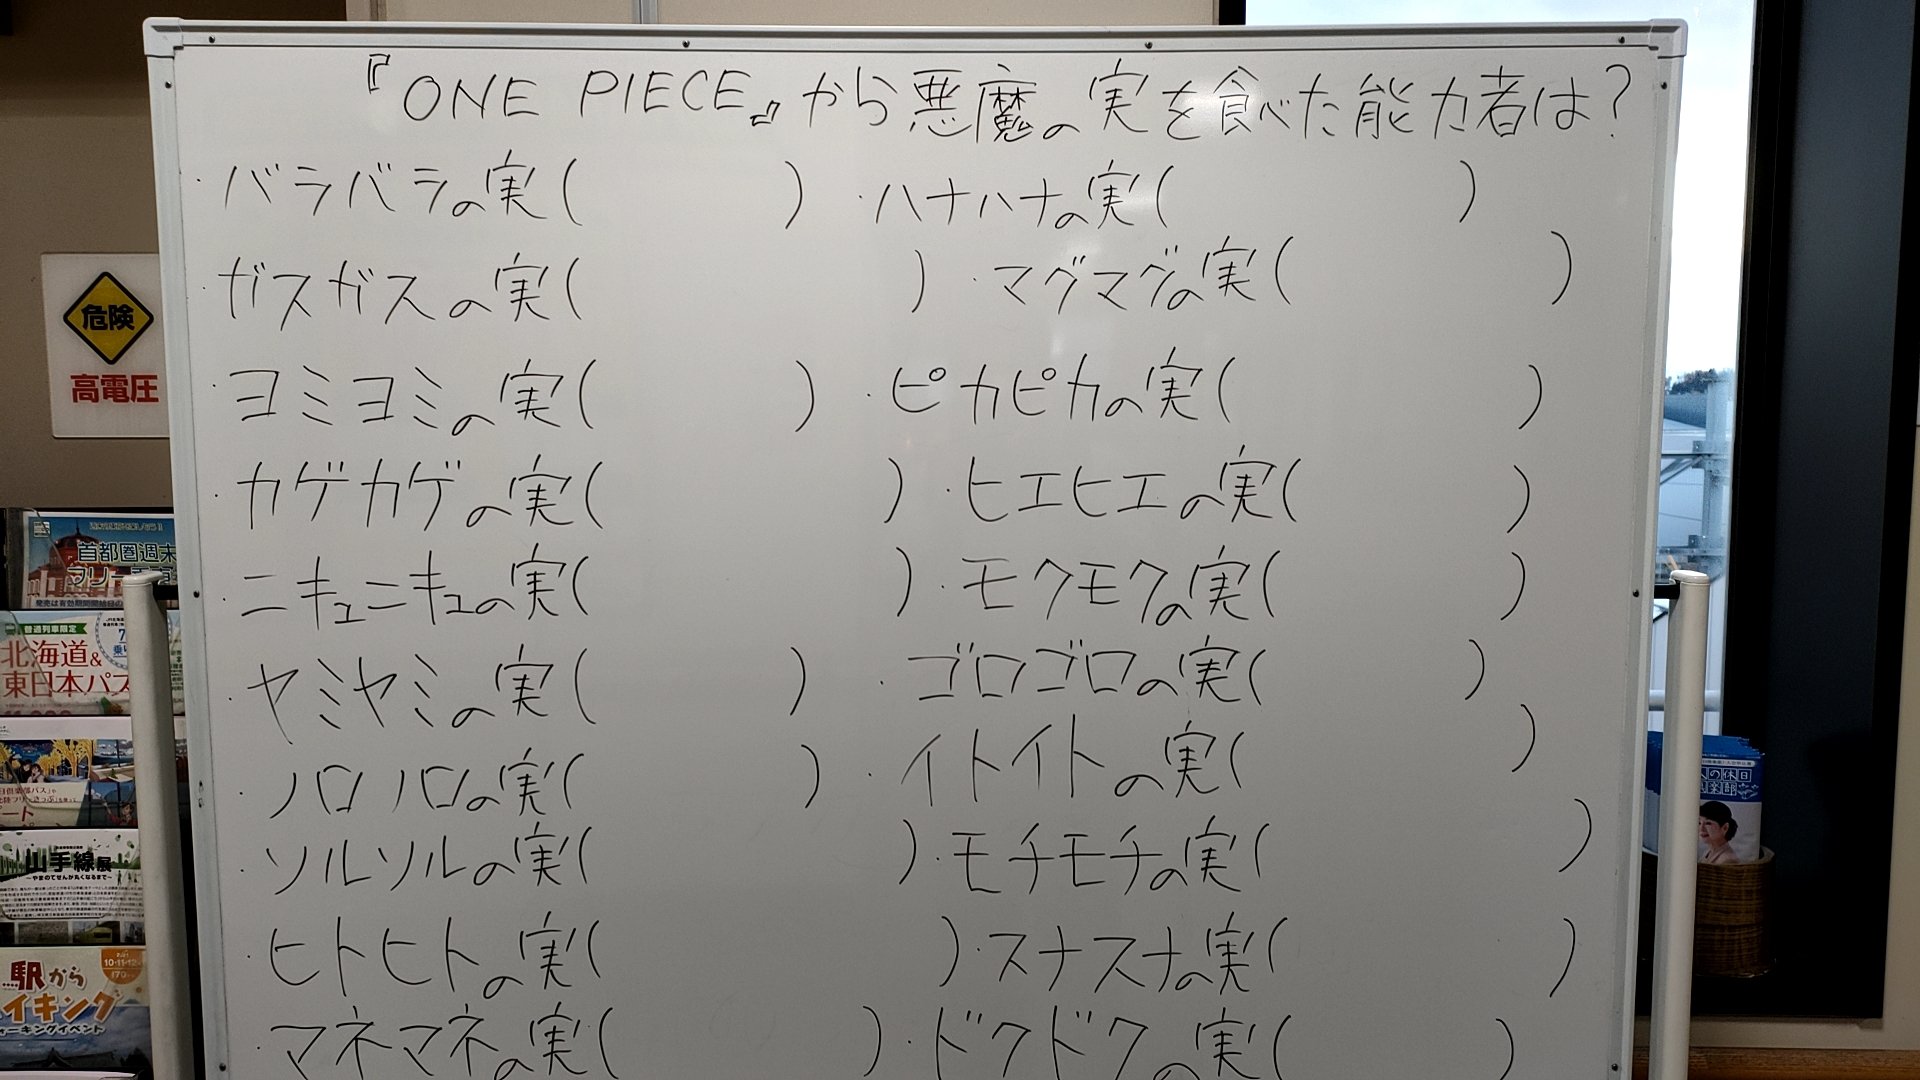 『ONE PIECE』から悪魔の実を食べた能力者は?
・バラバラの実(　　　)・ハナハナの実(　　　)
ガスガスの実(　　　)・マグマグの実(　　　)
・ヨミヨミの実(　　　)・ピカピカの実(　　　)
・カゲカゲの実(　　　)・ヒエヒエの実(　　　)
・ニキュニキュの実(　　　)・モクモクの実(　　　)
・ヤミヤミの実(　　　)・ゴロゴロの実(　　　)
・ノロノロの実(　　　)・イトイトの実(　　　)
・ソルソルの実(　　　)・モチモチの実(　　　)
・ヒトヒトの実(　　　)・スナスナの実(　　　)
・マネマネの実(　　　)・ドクドクの実(　　　)
危険
高電圧
首都圏週末
フリー
普通列車限定
北海道&
東日本パス
山手線展
駅から
イキング
ォーキングイベント
の休日